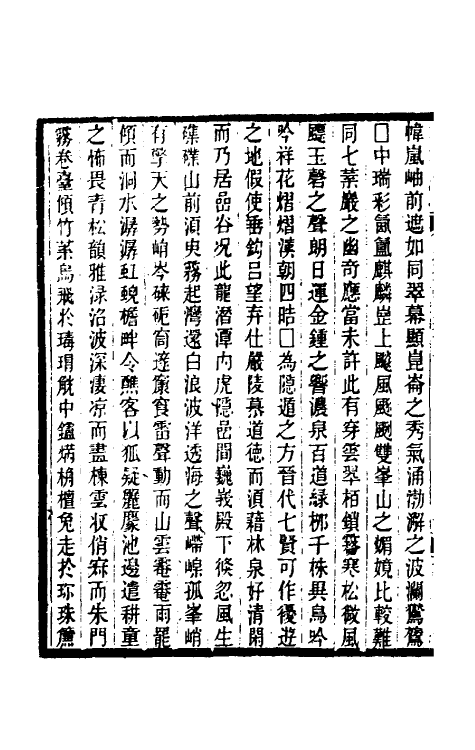 幃嵐岫前遮如同翠幕顯崑崙之秀氣涌渤澥之波瀾鴛鴦
□中瑞彩氤氳麒麟崑上颼風颼颼雙峯山之媚境比較難
同七葉巖之幽奇應當未許此有穿雲翠栢鎖霧寒松微風
颺玉磬之聲朗日運金鍾之響濃泉百道綠柳千株異鳥吟
吟祥花熠熠漢朝四皓□為隱遁之方晉代七賢可作優遊
之地假使垂鈎呂望弃仕嚴陵慕道德而湏藉林泉好清閑
而乃居嵒谷况此龍潛潭内虎隱嵒間巍峩殿下倐忽風生
磼磼山前湏臾霧起灣還白浪波洋透海之聲嶀崲孤峯峭
有擎天之勢峭岑硉砈窗窓食雷聲動而山雲菴菴雨罷
傾而洞水潺潺虹蜺檐畔令醮客以狐疑麗麇池邊遣耕童
之怖畏青松韻雅淥沼波深凄凉而畫棟雲収俏寂而朱門
霧卷臺傾竹葉烏飛於璹瑁觥中鑪爇栴檀兔走於珎珠簾